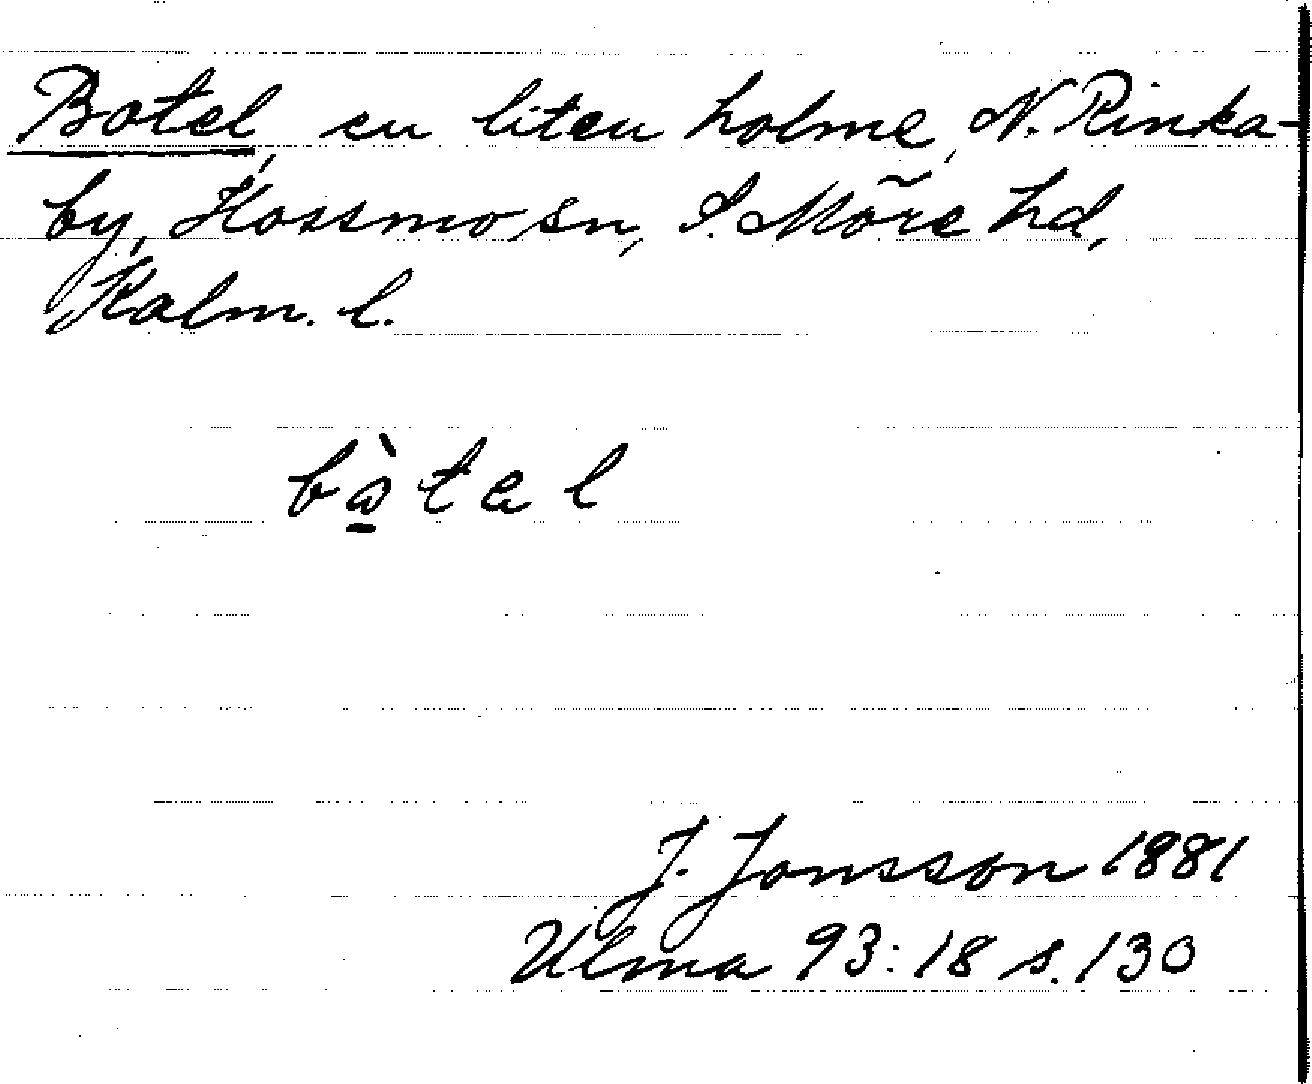 Botel, en liten holme, N. Rinka-
by, Hossmo sn, S. Möre hd,
Kalm. l.
bòtel
J. Jonsson 1881
Ulma 93:18 s. 130